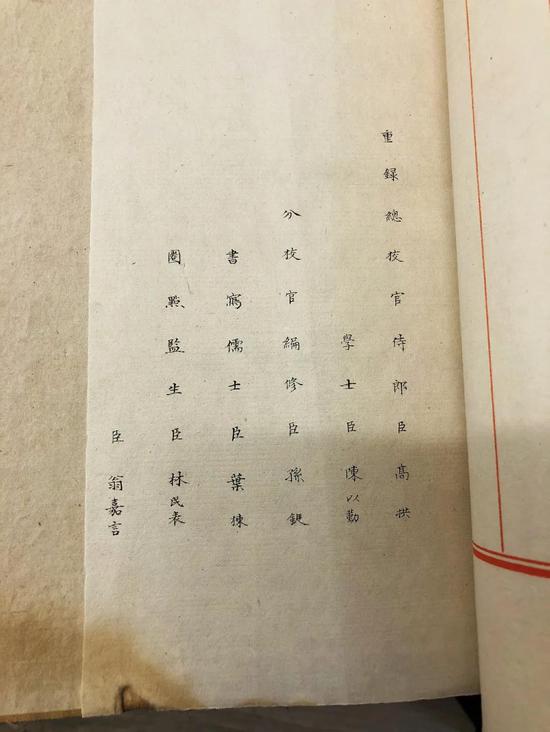 重録總挍官侍郎臣高拱
學士臣陳以勤
分挍官編修臣孫鋌
書寫儒士臣葉棟
圈㸃監生臣林民表
臣翁嘉言